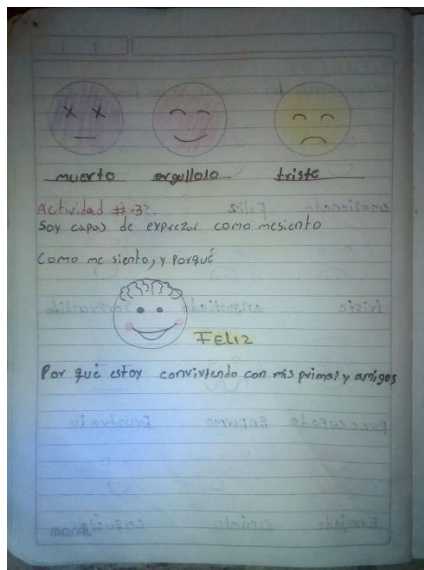 muerto orgulloso triste
Actividad #32.
Soy capas de exprezar como mesiento
Como me siento, y porqué
FELIZ
Por qué estoy conviviendo con mis primos y amigos